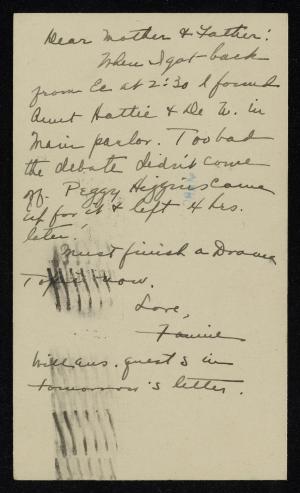 Dear Mother & Father:
When I got back
from Ec at 2:30 I found
Aunt Hattie & De W. in
Main parlor. Too bad
the debate didn't come
off. Peggy Higgins came
up for it & left 4 hrs.
later.
Must finish a Drama
Topic now.
Love,
Fannie
Will ans. quest's in
tomorrow's letter.